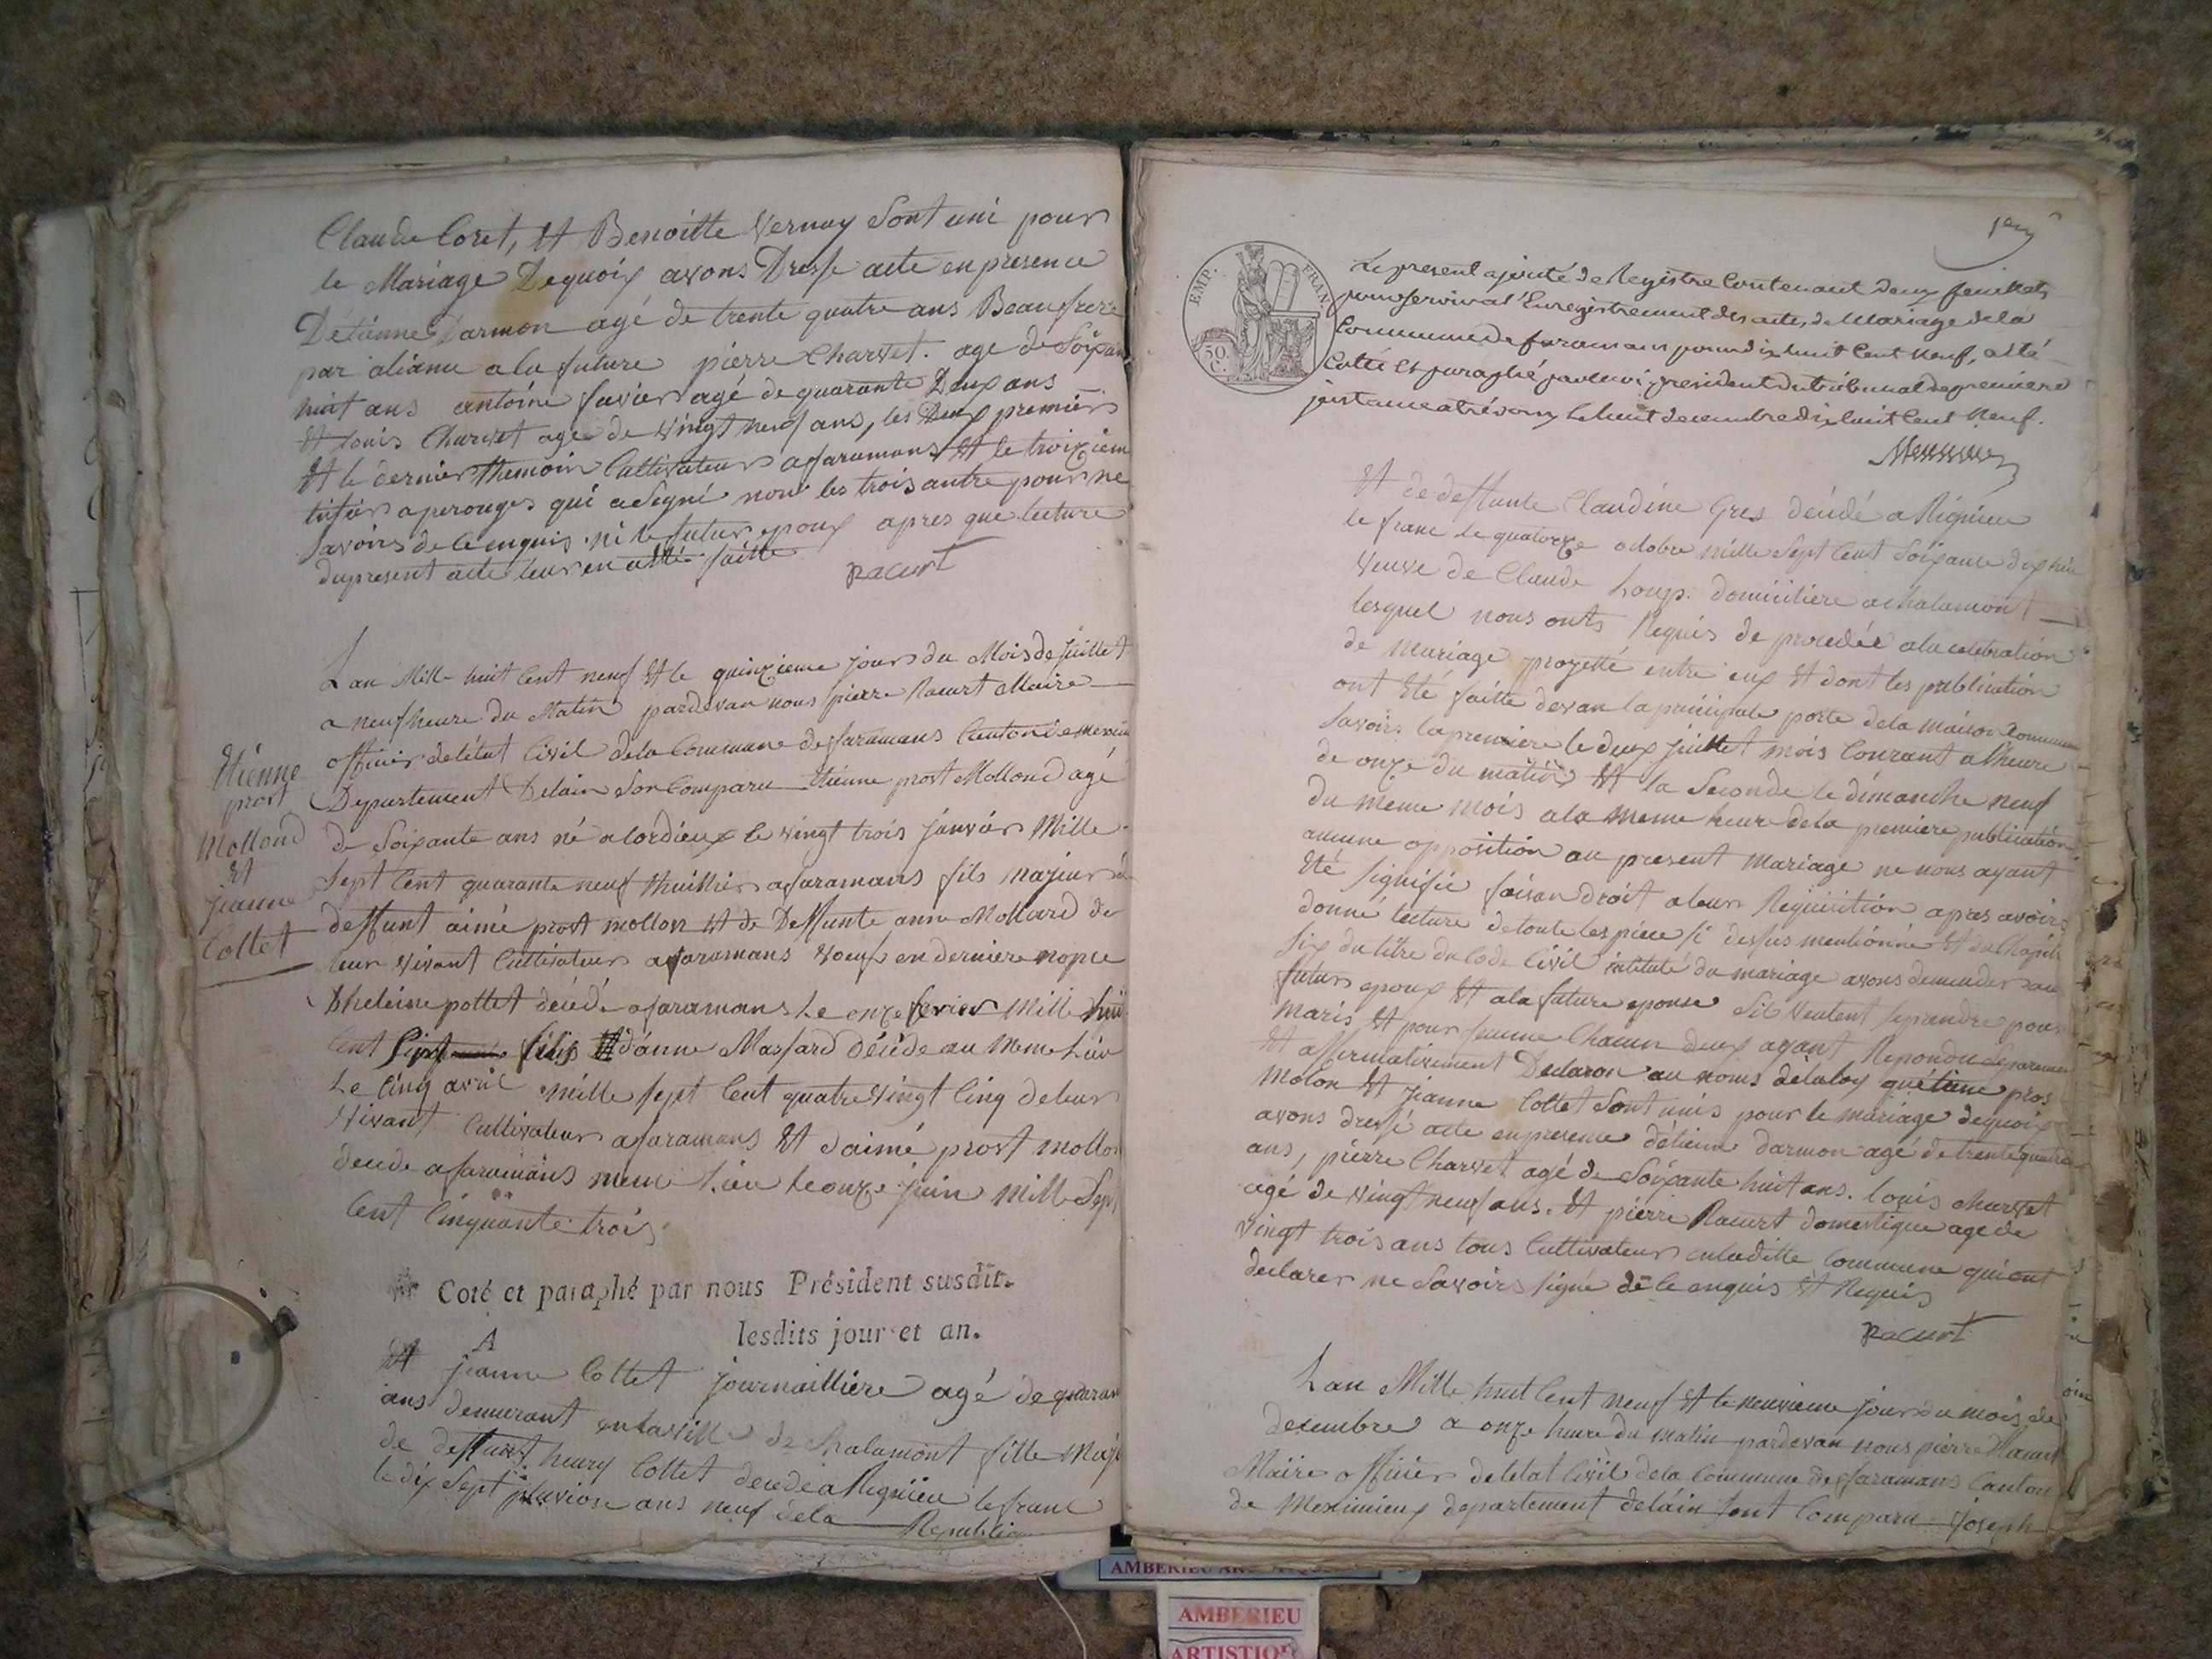 Claude Coret, Et Benoitte Vernay Sont uni pour
le Mariage Dequoix avons Dressé acte en presence
Détiénne Darmon agé de trente quatre ans Beaufrere
par aliance ala future pierre Charvet. age de Soixan
huit ans antoine favier agé de quarante Deux ans
Et Louis Charvet age de Vingt neuf ans, les Deux premiers
Et le dernier themoin Cultivateur afaramans Et le troizieme
aperouges qui a Segné non les trois autre pour ne
Savoirs de le enquis ni le futur epoux apres que lecture
dupresent acte leur en atté faitte
Racurt
Lan Mille huit Cent neuf Et le quinzieme jour du Mois de juillet
a neuf heure du Matin pardevan nous pierre Racurt Maire
officier delétat Civil dela Commune de faramans Canton de mexim
Departement Delain Son Comparu Etienne prost Mollond agé
de Soixante ans né a lordieux le vingt trois janvier Mille
Sept Cent quarante neuf thuillier afaramans fils majeur d
deffunt aimé prost mollon Et de Deffunte anne Mollard de
leur vivant Cultivateur afaramans Veuf en derniere nopce
Dheleine pottet décédé afaramans Le onze fevrier Mille hui
Cent Sept fils Et danne Massard décéde au Meme Liéu
Le Cinq avril mille sept Cent quatre Vingt Cinq deleur
Vivant Cultivateur afaramans Et daimé prost mollon
decede afaramans meme Liéu le onze juin Mille Sept
Cent Cinquante trois
Etiénne
prost
Mollond
Et
jeanne
Collet
Coté et paraphé par nous Président susdit.
lesdits jour et an.
A
Et jeanne Collet journailliére agé de quaran
ans demurant enlaville de Chalamont fille Maj
de deffunt henry Collet decedé a Rignieu le franc
le dix Sept pluviose ans neuf dela Republi
EMP. FRAN
50 C.
1er
Le present ajouté de Registre Contenant deux feuillets
pour servir a l'Enregistrement des actes de Mariage de la
Commune de faramans pour dix huit Cent Neuf, a été
Cotté et paraphé par nous president du tribunal de premiere
justance atrévoux le huit decembre dix huit Cent Neuf.
Et de deffunte Claudine Gres décédé a Rignieu
le franc le quatorze octobre mille Sept Cent Soixante dix hui
Veuve de Claude Loup. domiciliere achalamont
lesquel nous onts Requis de procedée ala celebration
de mariage projetté entre eux Et dont les publication
ont Eté faitte devan la principale porte dela maison Commune
Savoirs la premiere le deux juillet mois Courant a lheure
de onze du matin Et la Seconde le dimanche neuf
du meme mois ala meme heure dela premiere publication
aucune opposition au present mariage ne nous ayant
Eté Signifié faisan droit a leur Requisition apres avoirs
donné lecture detoute les piéce si dessus mentionné Et du Chapitre
Six du titre du Code Civil intitulé du mariage avons demander au
futur epoux Et ala future epouse Sils veulent seprandre pour
Maris Et pour femme Chacun deux ayant Repondu Separemen
Et affirmativement Declaron au noms delaloy quétiene pros
Molon Et jeanne Collet Sont unis pour le mariage dequoix
avons dressé acte en presence détienne darmon agé de trente quatre
ans, pierre Charvet agé de Soixante huit ans. louis Charvet
agé de vingt neuf ans. Et pierre Racurt domestique age de
Vingt trois ans tous Cultivateur en ladite Commune qui ont
declarer ne Savoirs Signé de le enquis Et Requis
Racurt
Lan Mille huit Cent neuf Et le neuvieme jour du mois de
decembre a onze heure du matin pardevan nous pierre Racurt
Maire officier deletat Civil dela Commune de faramans Canton
de Meximieux departement delain Sont Comparu joseph
AMBERIEU
AMBERIEU
ARTISTIQ